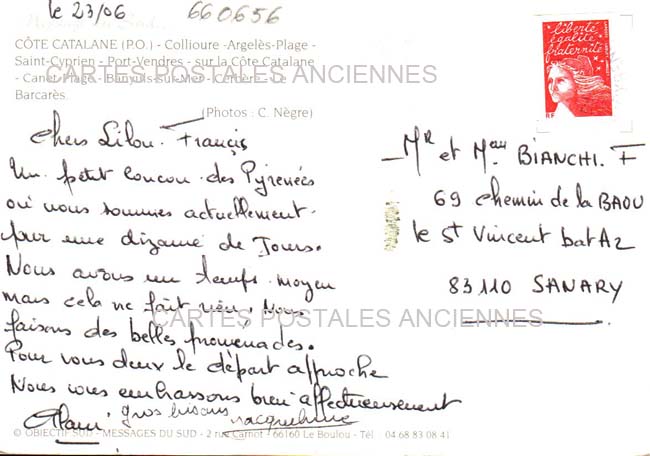 le 23/06
660656
CÔTE CATALANE (P.O.) - Collioure -Argelès-Plage -
Saint-Cyprien - Port-Vendres - sur la Côte Catalane
- Canet-Plage - Banyuls-sur-Mer - Cerbère - Le
Barcarès.
(Photos : C. Nègre)
CARTES POSTALES ANCIENNES
liberté
égalité
fraternité
Chers Lilou. Francis
Un petit coucou des Pyrénées
où nous sommes actuellement.
pour une dizaine de Jours.
Nous avons un temps moyen
mais cela ne fait rien, Nous
faisons des belles promenades.
Pour vous deux le départ approche
Nous vous embrassons bien affectueusement
Alain gros bisous Jacqueline
Mr et Mme BIANCHI. F
69 chemin de la BAOU
le St Vincent bat A2
83110 SANARY
CARTES POSTALES ANCIENNES
© OBJECTIF SUD - MESSAGES DU SUD - 2 rue Carnot - 66160 Le Boulou - Tél : 04 68 83 08 41